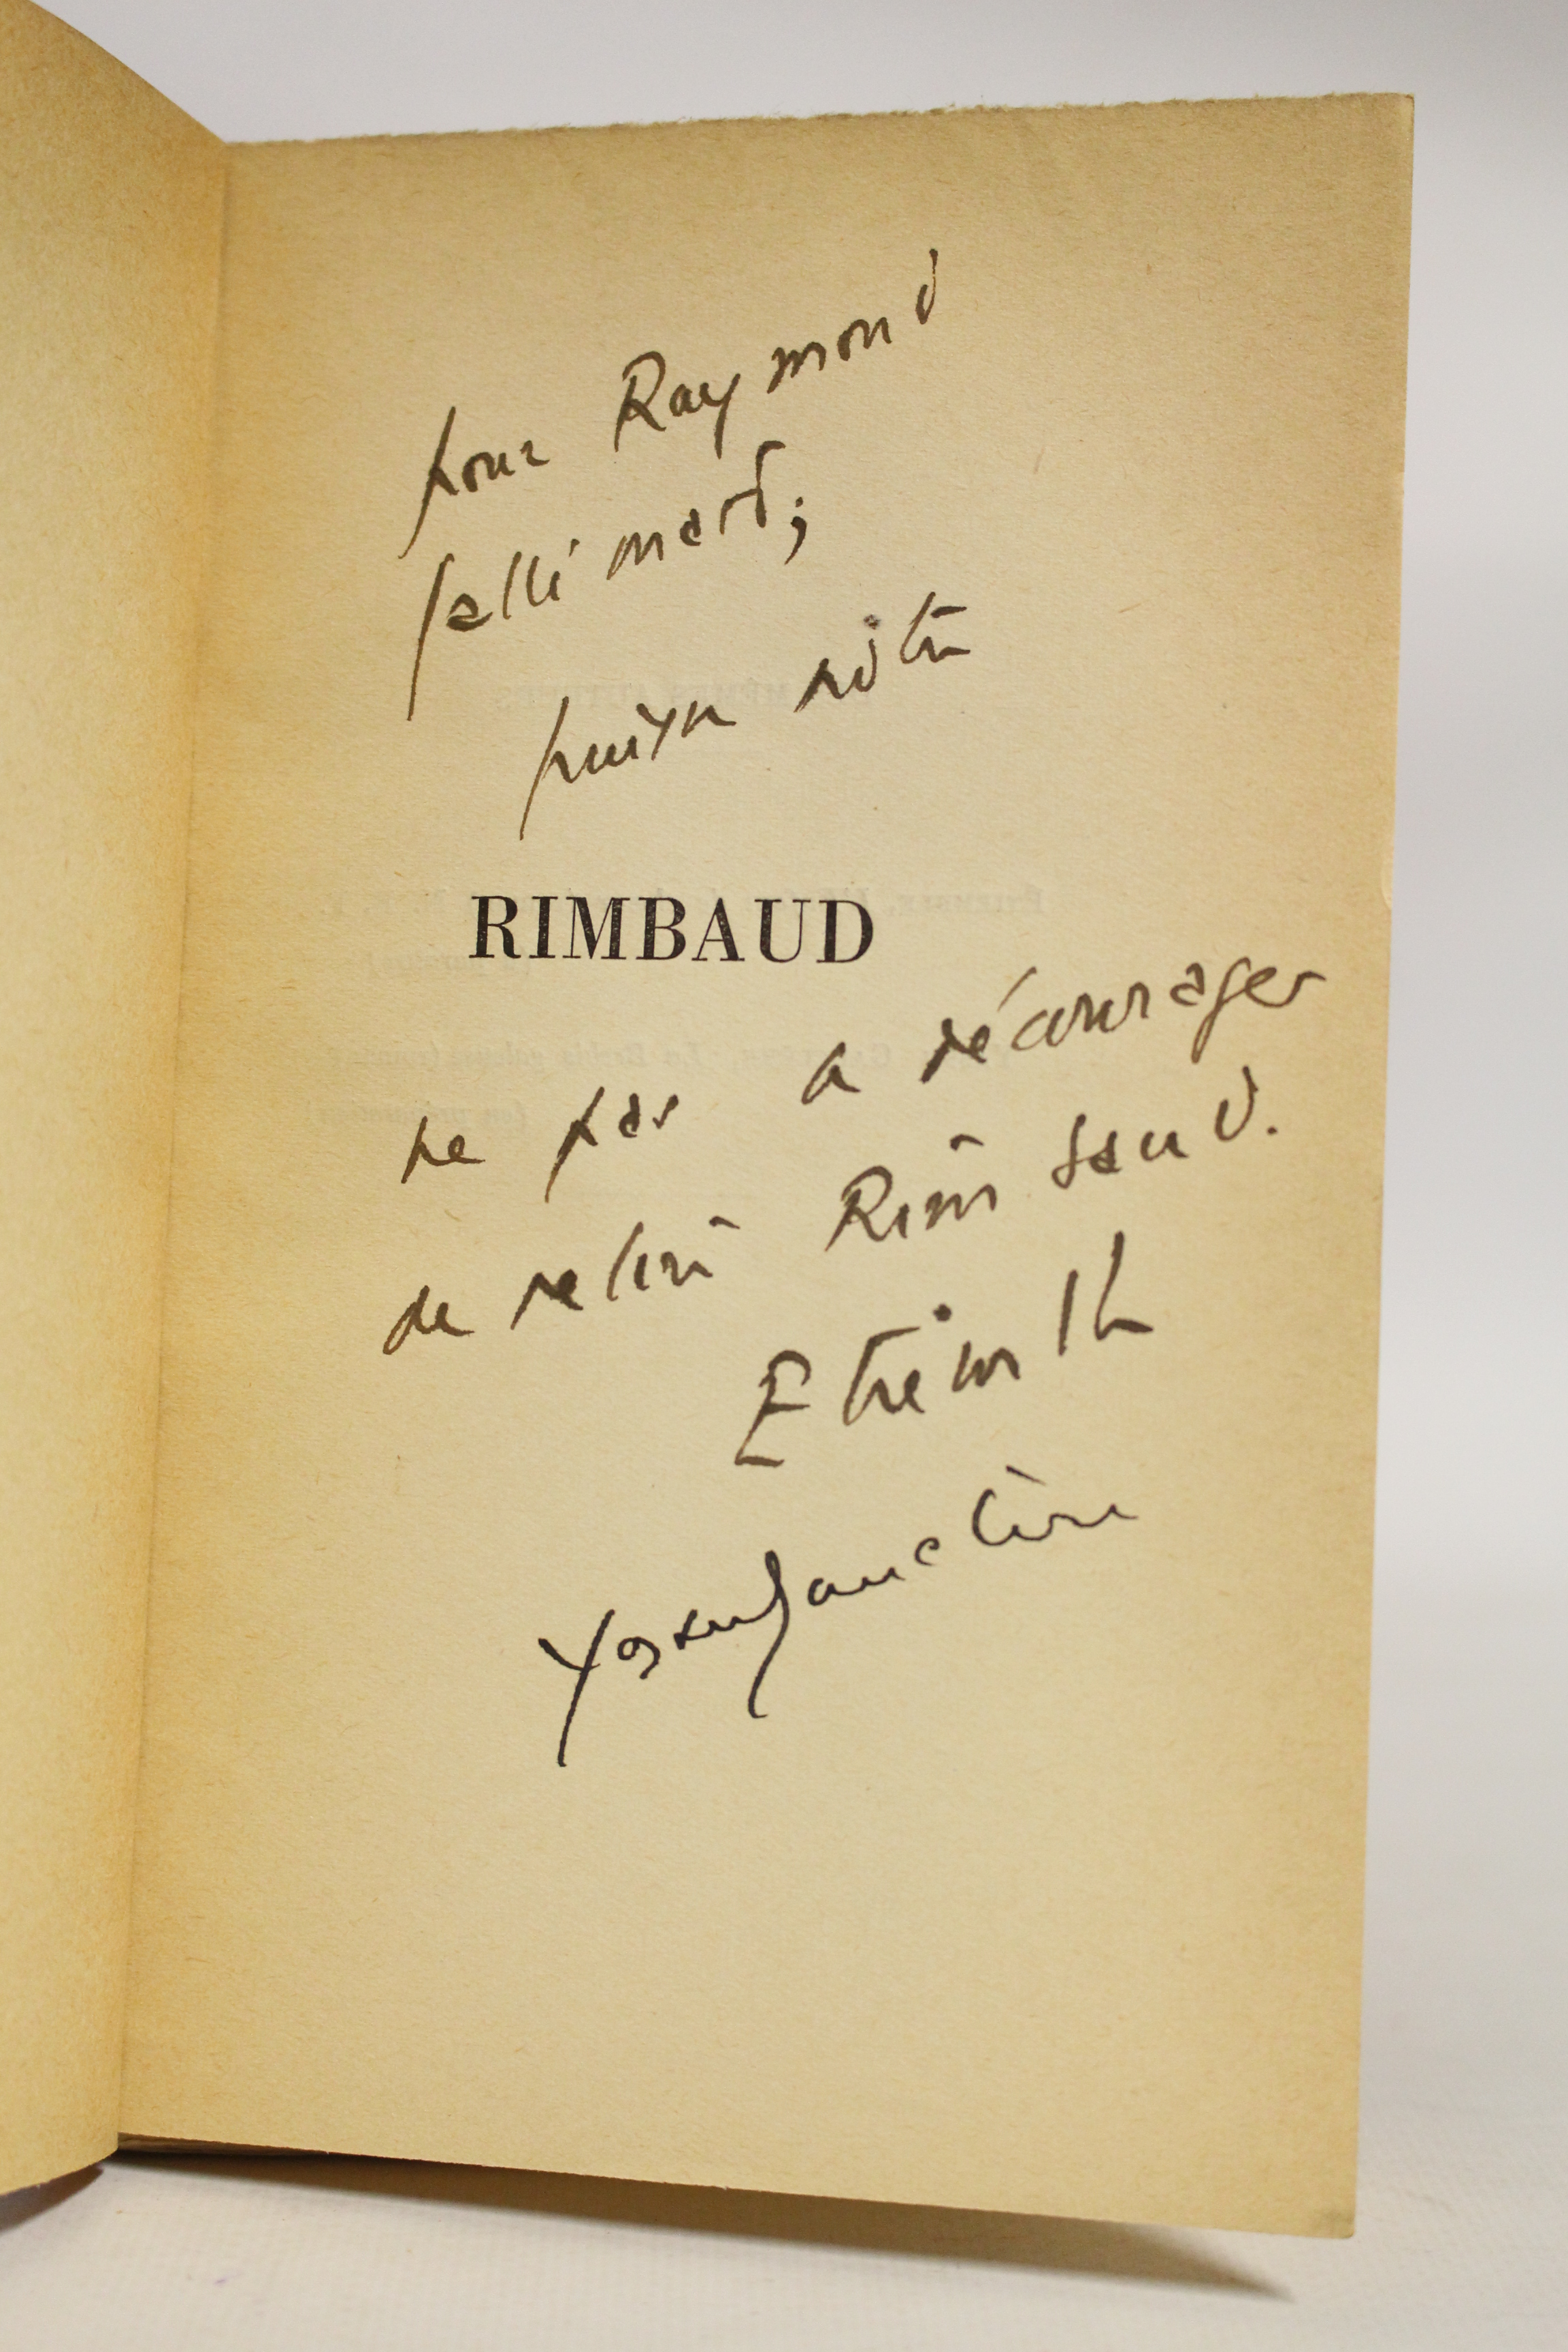 pour Raymond
Gallimard;
puisse notre
RIMBAUD
ne pas le décourager
de relire Rimbaud.
Etiemble
Yassu Gauclère